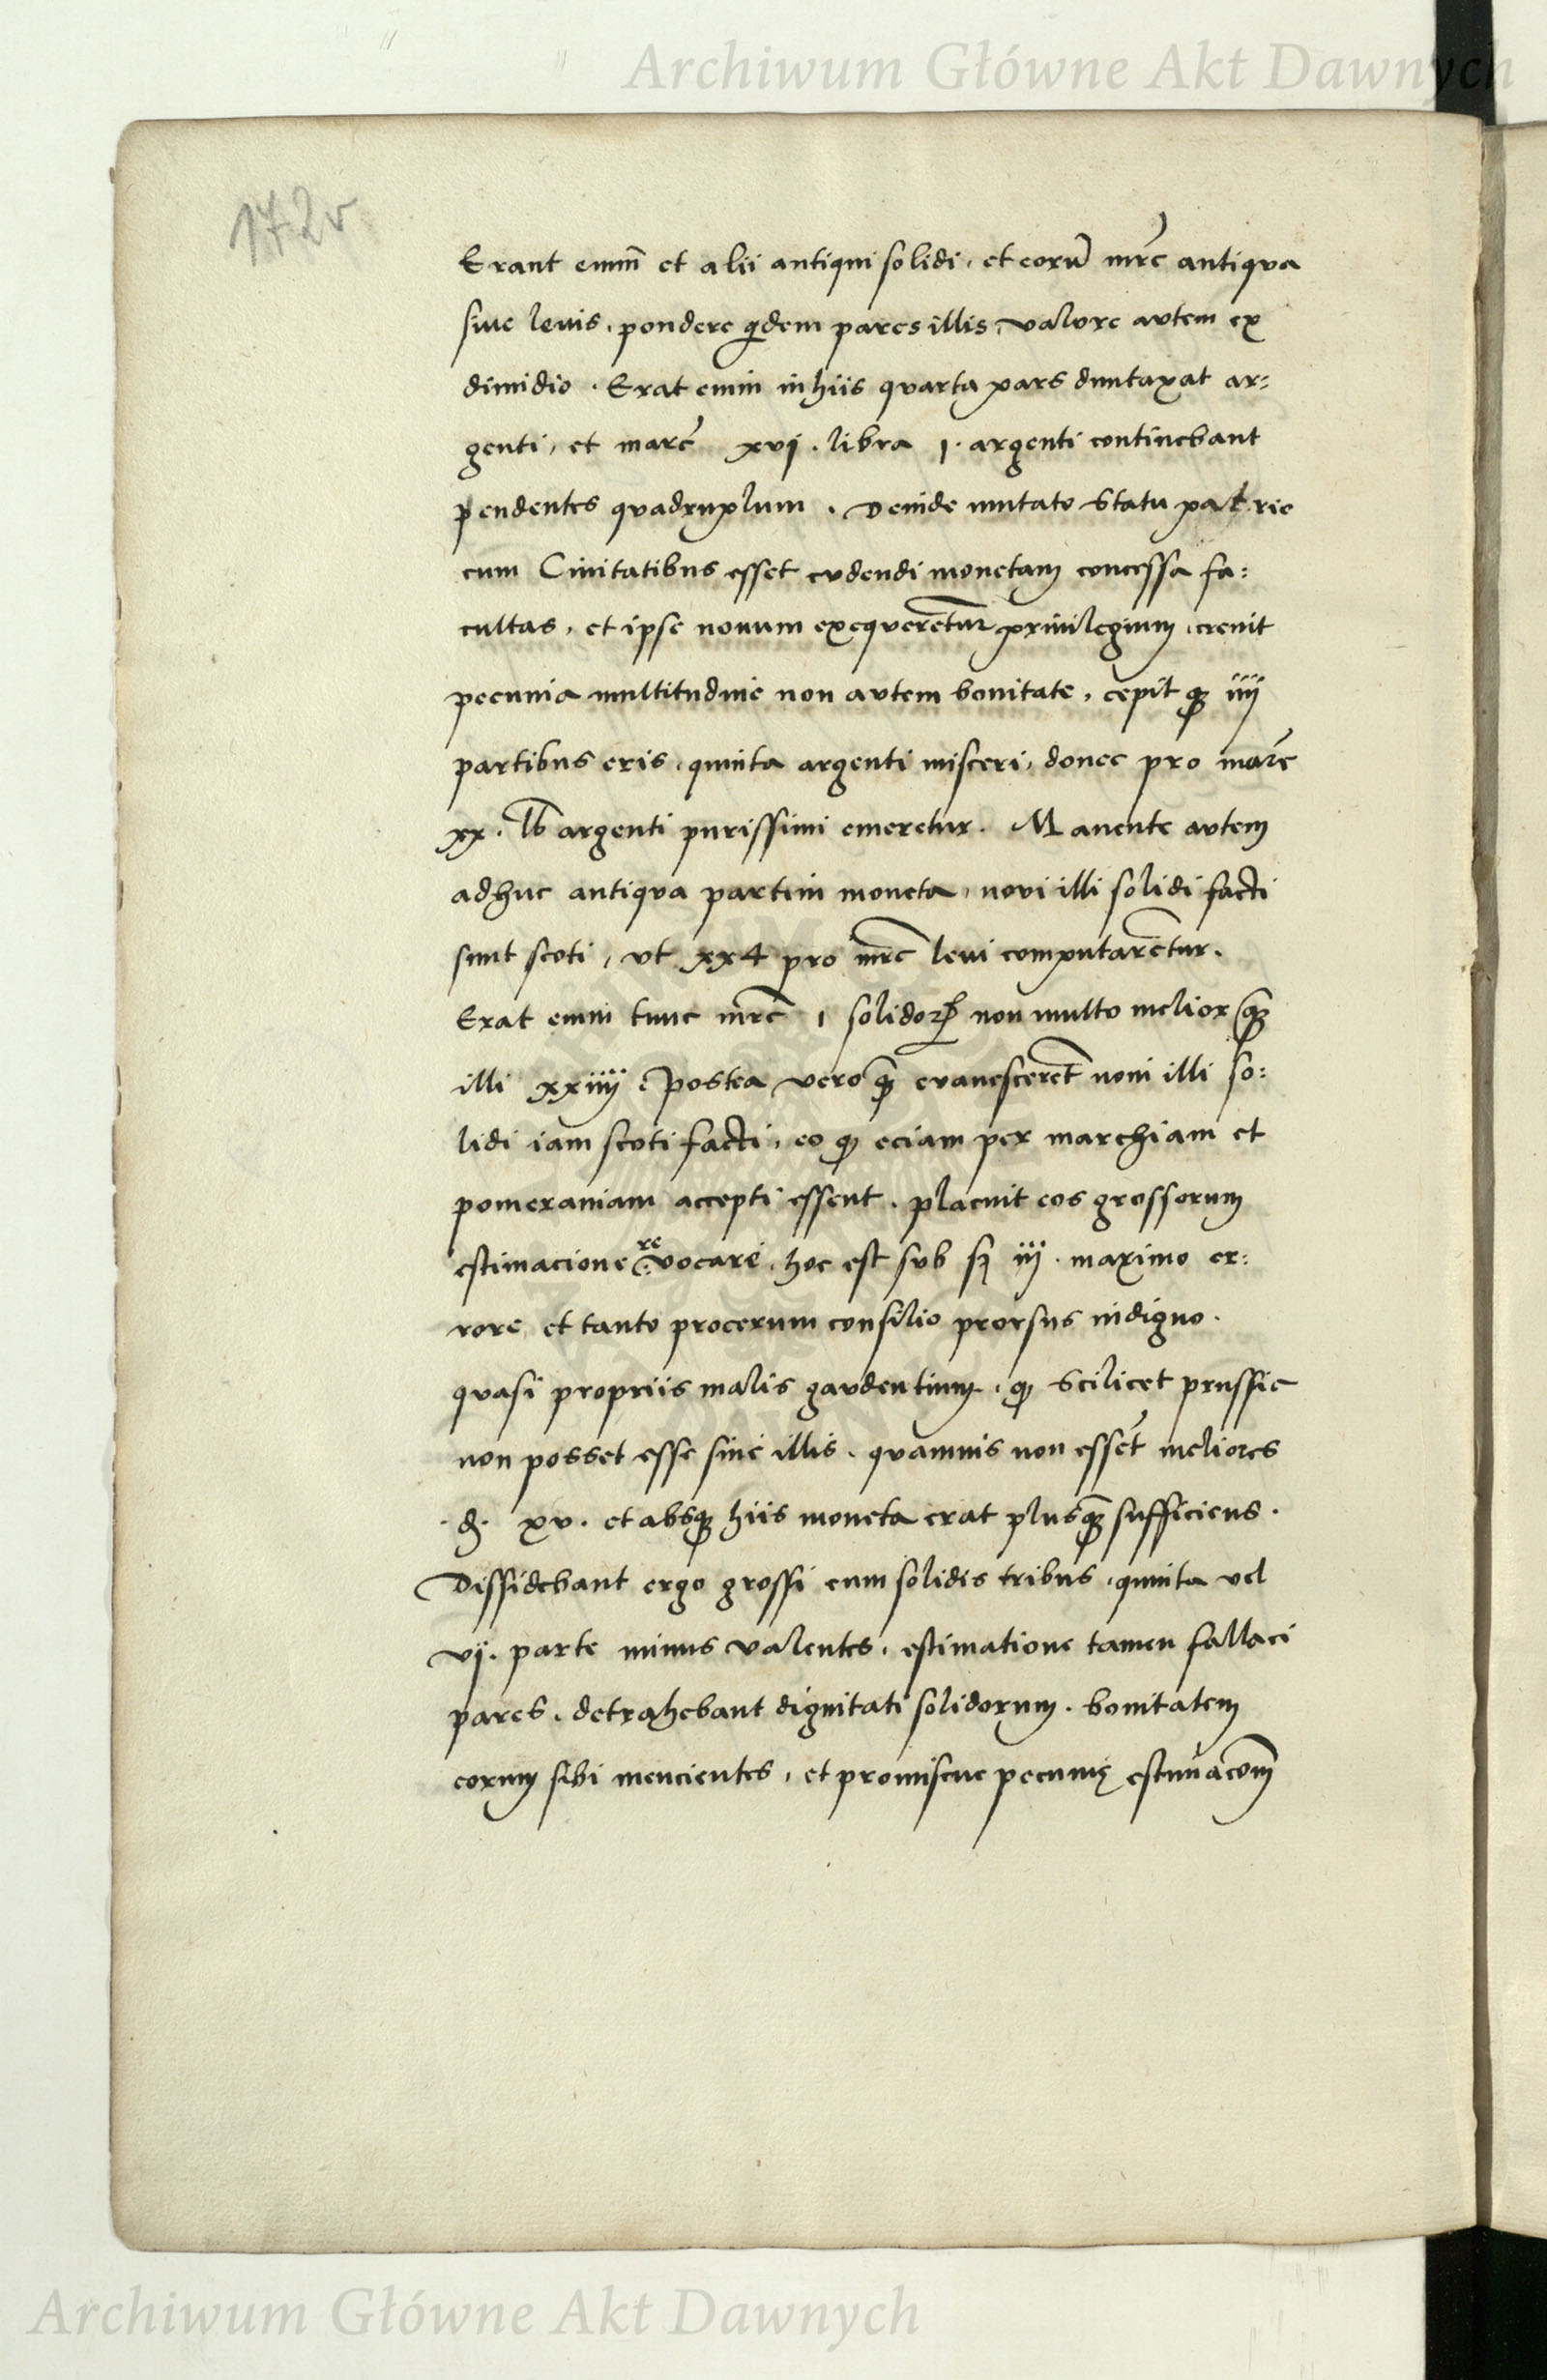 Archiwum Główne Akt Dawnych
172v
Erant enim̄ et alii antiqui solidi, et eorū mrc̄ antiqua
siue leuis, pondere qͥdem pares illis, valore autem ex
dimidio. Erat enim in hiis quarta pars duntaxat ar:
genti, et marc̄ xvj. libra 1. argenti continebant
pendentes quadruplum. Deinde mutato statu patrie
cum Ciuitatibus esset cudendi monetam concessa fa:
cultas, et ipse nouum exequerent̄ur priuilegium, creuit
pecunia multitudine non autem bonitate, cepitqꝫ iiij
partibus eris, quinta argenti misceri, donec pro marc̄
xx. lb̄ argenti purissimi emeretur. Manente autem
adhuc antiqua partim moneta, novi illi solidi facti
sunt scoti, vt xx4 pro mrc̄ leui computarent̄ur.
Erat enim tunc mrc̄ 1 solidoꝝ non multo melior qꝫ̄
illi xxiiij. Postea vero qꝫ̄ evanescerent̄ noui illi so:
lidi iam scoti facti, eo qꝫ eciam per marchiam et
pomeraniam accepti essent, placuit eos grossorum
estimacione revocare, hoc est sub sꝫ iij. maximo er:
rore et tanto procerum consilio prorsus indigno.
quasi propriis malis gaudentium, qꝫ scilicet prussie
non posset esse sine illis, quamuis non essēt meliores
.đ. xv. et absqꝫ hiis moneta erat plusqꝫ̄ sufficiens.
Dissidebant ergo grossi cum solidis tribus, quinta vel
vj. parte minus valentes, estimatione tamen fallaci
pares, detrahebant dignitati solidorum, bonitatem
eorum sibi mencientes, et promiscue pecunię estimacōm̄
Archiwum Główne Akt Dawnych